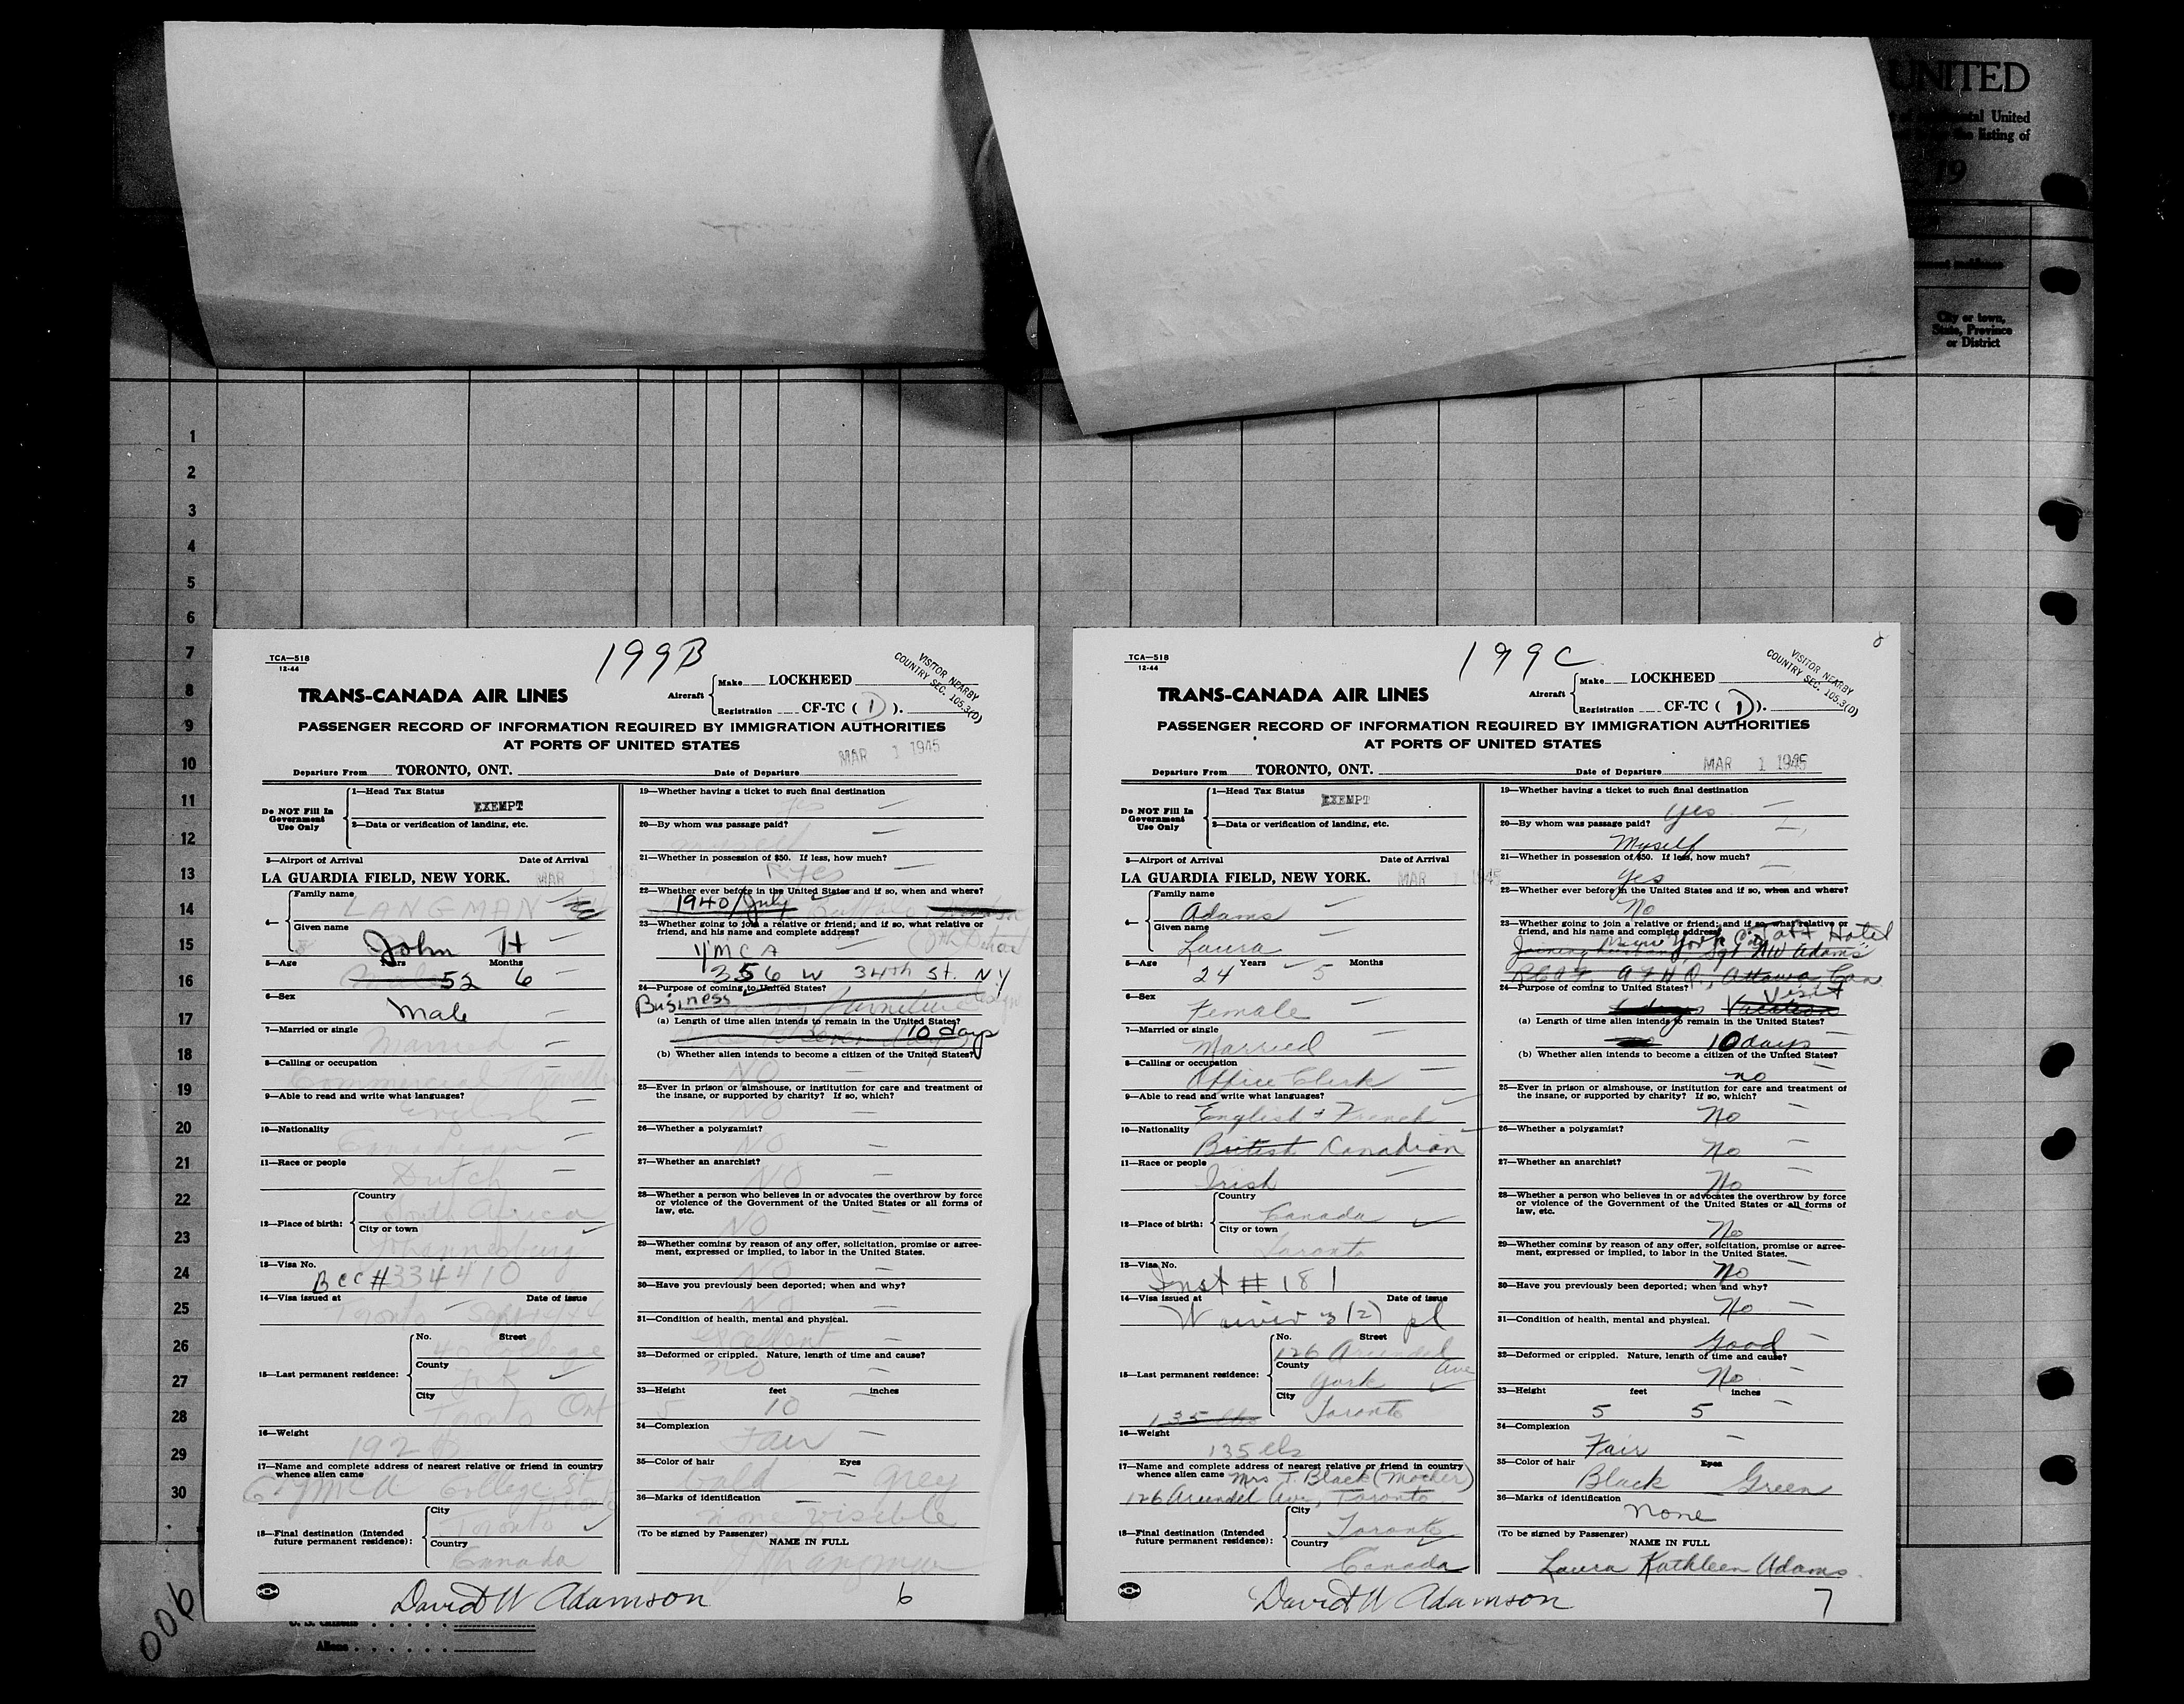 UNITED
tal United
the listing of
19
City or town,
State, Province
or District
1
2
3
4
5
6
7
8
9
10
11
12
13
14
15
16
17
18
19
20
21
22
23
24
25
26
27
28
29
30
TCA—518
12-44
199B
VISITOR NEARBY
COUNTRY SEC. 105.3(D)
TRANS-CANADA AIR LINES
Aircraft
Make LOCKHEED
Registration CF-TC ( 1 ).
PASSENGER RECORD OF INFORMATION REQUIRED BY IMMIGRATION AUTHORITIES
AT PORTS OF UNITED STATES
MAR 1 1945
Departure From TORONTO, ONT. Date of Departure
Do NOT Fill In
Government
Use Only
1—Head Tax Status
EXEMPT
2—Data or verification of landing, etc.
3—Airport of Arrival Date of Arrival
LA GUARDIA FIELD, NEW YORK. MAR 1 1945
4—
Family name
LANGMAN
Given name
John H
5—Age Years Months
52 6
6—Sex
Male
7—Married or single
Married
8—Calling or occupation
Commercial
9—Able to read and write what languages?
English
10—Nationality
Canadian
11—Race or people
Dutch
12—Place of birth:
Country
South Africa
City or town
Johannesburg
13—Visa No.
BCC #334410
14—Visa issued at Date of issue
Toronto
15—Last permanent residence:
No. Street
40 College
County
York
City
Toronto Ont
16—Weight
192
17—Name and complete address of nearest relative or friend in country
whence alien came
YMCA College St
18—Final destination (Intended
future permanent residence):
City
Toronto
Country
Canada
19—Whether having a ticket to such final destination
Yes
20—By whom was passage paid?
myself
21—Whether in possession of $50. If less, how much?
Yes
22—Whether ever before in the United States and if so, when and where?
1940/July Buffalo
23—Whether going to join a relative or friend; and if so, what relative or
friend, and his name and complete address?
YMCA
356 W 34th St. NY
24—Purpose of coming to United States?
Business
(a) Length of time alien intends to remain in the United States?
10 days
(b) Whether alien intends to become a citizen of the United States?
NO
25—Ever in prison or almshouse, or institution for care and treatment of
the insane, or supported by charity? If so, which?
NO
26—Whether a polygamist?
NO
27—Whether an anarchist?
NO
28—Whether a person who believes in or advocates the overthrow by force
or violence of the Government of the United States or all forms of
law, etc.
NO
29—Whether coming by reason of any offer, solicitation, promise or agree-
ment, expressed or implied, to labor in the United States.
NO
30—Have you previously been deported; when and why?
NO
31—Condition of health, mental and physical.
Excellent
32—Deformed or crippled. Nature, length of time and cause?
NO
33—Height feet inches
5 10
34—Complexion
Fair
35—Color of hair Eyes
Bald Grey
36—Marks of identification
none visible
(To be signed by Passenger)
NAME IN FULL
J H Langman
David W Adamson
6
8
TCA—518
12-44
199C
VISITOR NEARBY
COUNTRY SEC. 105.3(D)
TRANS-CANADA AIR LINES
Aircraft
Make LOCKHEED
Registration CF-TC ( 1 ).
PASSENGER RECORD OF INFORMATION REQUIRED BY IMMIGRATION AUTHORITIES
AT PORTS OF UNITED STATES
MAR 1 1945
Departure From TORONTO, ONT. Date of Departure
Do NOT Fill In
Government
Use Only
1—Head Tax Status
EXEMPT
2—Data or verification of landing, etc.
3—Airport of Arrival Date of Arrival
LA GUARDIA FIELD, NEW YORK. MAR 1 1945
4—
Family name
Adams
Given name
Laura
5—Age Years Months
24 5
6—Sex
Female
7—Married or single
Married
8—Calling or occupation
Office Clerk
9—Able to read and write what languages?
English + French
10—Nationality
British Canadian
11—Race or people
Irish
12—Place of birth:
Country
Canada
City or town
Toronto
13—Visa No.
Inst # 181
14—Visa issued at Date of issue
Waiver 3(2) pl
15—Last permanent residence:
No. Street
126 Arundel Ave
County
York
City
Toronto
135 lbs
16—Weight
135 lbs
17—Name and complete address of nearest relative or friend in country
whence alien came Mrs T. Black (Mother)
126 Arundel Ave, Toronto
18—Final destination (Intended
future permanent residence):
City
Toronto
Country
Canada
19—Whether having a ticket to such final destination
Yes
20—By whom was passage paid?
Myself
21—Whether in possession of $50. If less, how much?
Yes
22—Whether ever before in the United States and if so, when and where?
No
23—Whether going to join a relative or friend; and if so, what relative or
friend, and his name and complete address?
New York City Taft Hotel
Joining husband, Sgt Adams
RCAF AFHQ, Ottawa, Can
24—Purpose of coming to United States?
Visit
Vacation
(a) Length of time alien intends to remain in the United States?
10 days
(b) Whether alien intends to become a citizen of the United States?
no
25—Ever in prison or almshouse, or institution for care and treatment of
the insane, or supported by charity? If so, which?
No
26—Whether a polygamist?
No
27—Whether an anarchist?
No
28—Whether a person who believes in or advocates the overthrow by force
or violence of the Government of the United States or all forms of
law, etc.
No
29—Whether coming by reason of any offer, solicitation, promise or agree-
ment, expressed or implied, to labor in the United States.
No
30—Have you previously been deported; when and why?
No
31—Condition of health, mental and physical.
Good
32—Deformed or crippled. Nature, length of time and cause?
No
33—Height feet inches
5 5
34—Complexion
Fair
35—Color of hair Eyes
Black Green
36—Marks of identification
None
(To be signed by Passenger)
NAME IN FULL
Laura Kathleen Adams
David W Adamson
7
006
Aliens